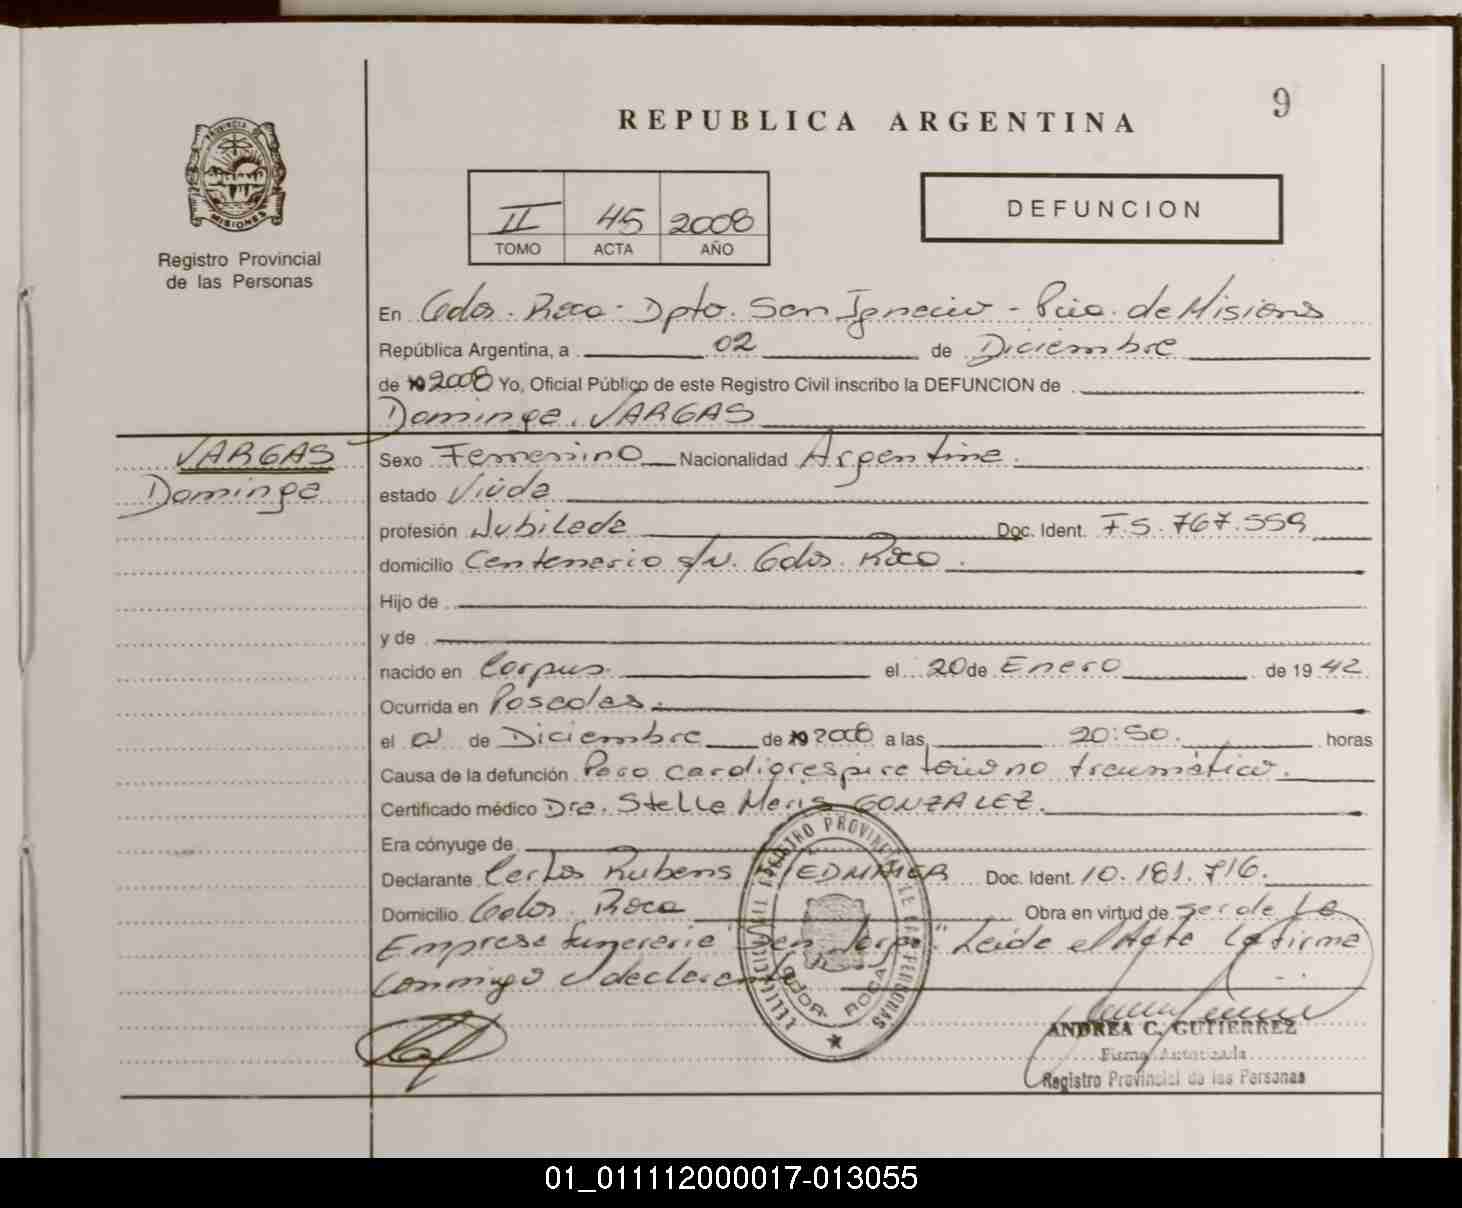 9
REPUBLICA ARGENTINA
PROVINCIA DE
MISIONES
Registro Provincial
de las Personas
II 45 2008
TOMO ACTA AÑO
DEFUNCION
En Gdor. Roca - Dpto. San Ignacio - Pcia. de Misiones
República Argentina, a 02 de Diciembre
de 2008 Yo, Oficial Público de este Registro Civil inscribo la DEFUNCION de
Dominga VARGAS
VARGAS
Dominga
Sexo Femenino Nacionalidad Argentina
estado Viuda
profesión Jubilada Doc. Ident. F.5.767.559
domicilio Centenario s/N. Gdor. Roca
Hijo de
y de
nacido en Corpus el 20 de Enero de 1942
Ocurrida en Posadas
el 01 de Diciembre de 2008 a las 20:50 horas
Causa de la defunción Paro cardiorespiratorio no traumático
Certificado médico Dra. Stella Maris GONZALEZ
Era cónyuge de
Declarante Carlos Rubens Doc. Ident. 10.181.716
Domicilio Gdor. Roca Obra en virtud de ser de la
Empresa funeraria "San Jorge" Leída el Acta la firma
conmigo el declarante
REGISTRO PROVINCIAL DE LAS PERSONAS
GDOR. ROCA
ANDREA C. GUTIERREZ
Firma Autorizada
Registro Provincial de las Personas
01_011112000017-013055